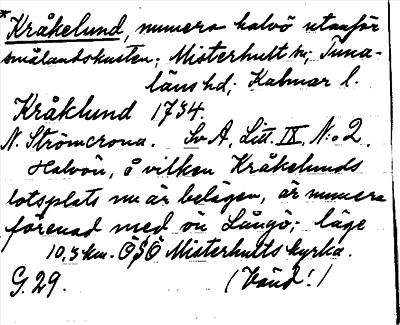 *Kråkelund, numera halvö utanför
smålandskusten; Misterhult sn; Tuna-
läns hd; Kalmar l.
Kråklund 1734.
N. Strömcrona. Sv. A, Litt. IX, N:o 2.
Halvön, å vilken Kråkelunds
lotsplats nu är belägen, är numera
förenad med ön Långö; läge
10,3 km. ÖSÖ Misterhults kyrka.
G. 29. (Vänd!)